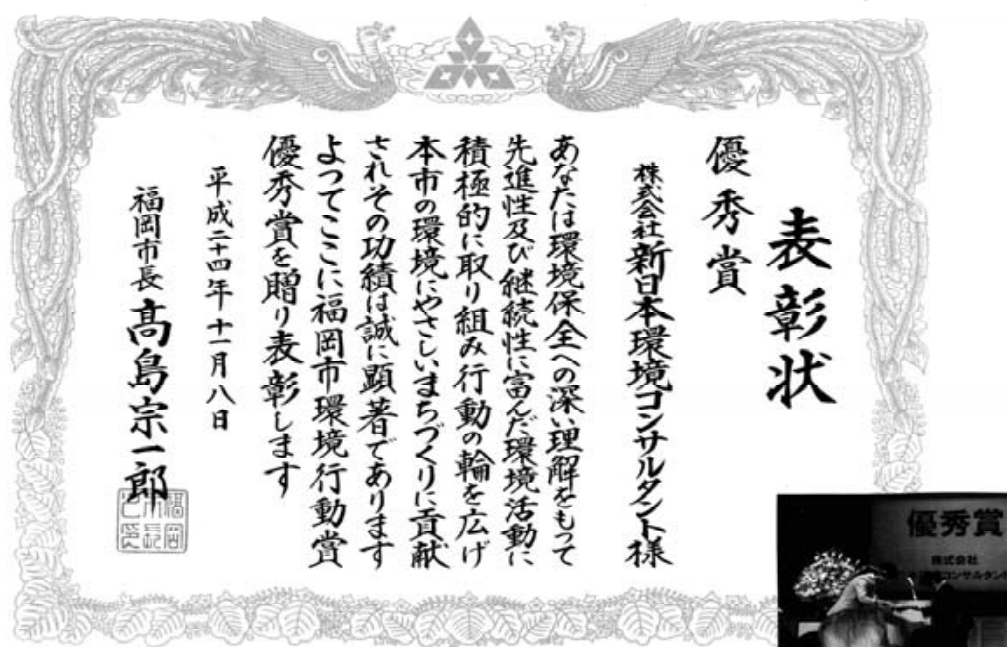 表彰状
優秀賞
株式会社新日本環境コンサルタント様
あなたは環境保全への深い理解をもって
先進性及び継続性に富んだ環境活動に
積極的に取り組み行動の輪を広げ
本市の環境にやさしいまちづくりに貢献
されその功績は誠に顕著であります
よってここに福岡市環境行動賞
優秀賞を贈り表彰します
平成二十四年十一月八日
福岡市長 髙島宗一郎
福岡
市長
之印
優秀賞
株式会社
コンサルタント